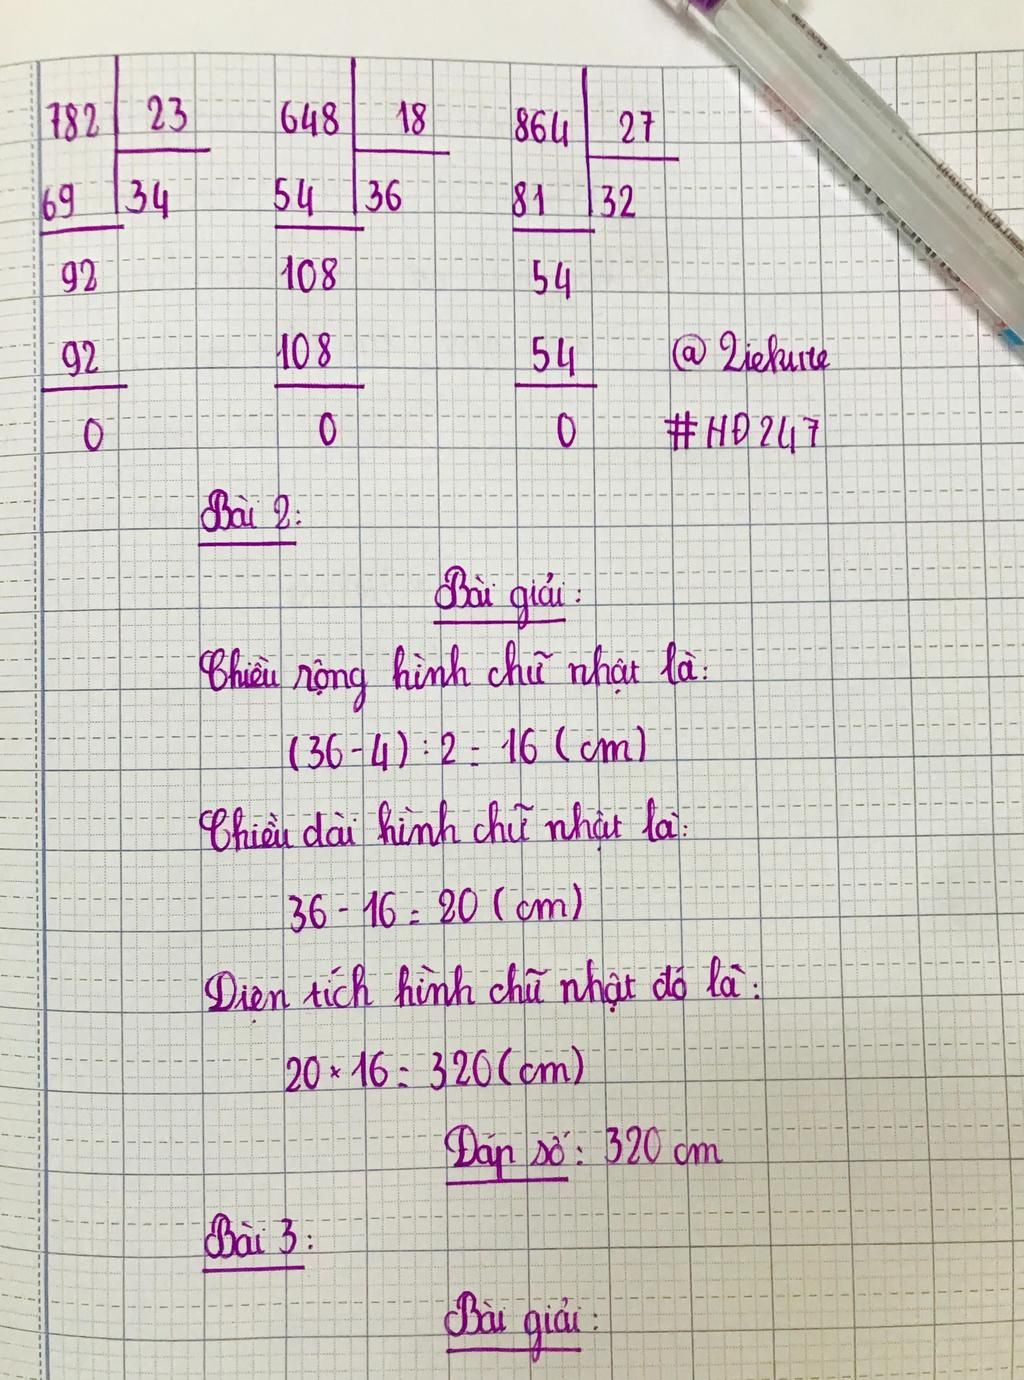 782 23 648 18 864 27
69 34 54 36 81 32
92 108 54
92 108 54 @2iekute
0 0 0 #HĐ247
Bài 2:
Bài giải:
Chiều rộng hình chữ nhật là:
(36-4):2=16(cm)
Chiều dài hình chữ nhật là:
36-16=20(cm)
Diện tích hình chữ nhật đó là:
20×16=320(cm)
Đáp số: 320 cm
Bài 3:
Bài giải: